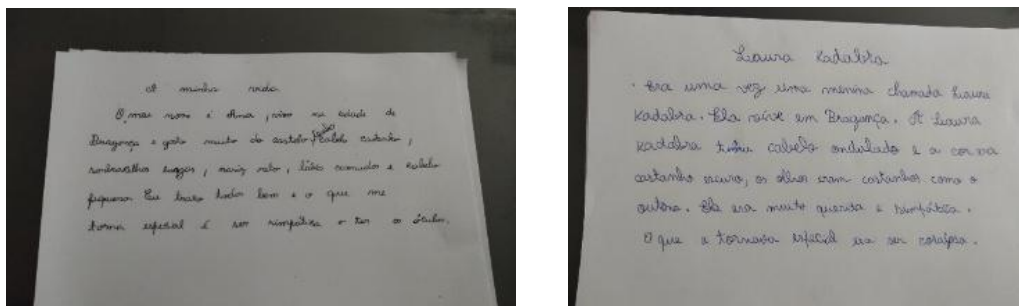 A minha vida
O meu nome é Anna, vivo na cidade de
Bragança e gosto muito do castelo, cabelo castanho,
sombrancelhas longas, nariz reto, lábio carnudos e cabelo
pequeno. Eu trato todos bem e o que me
torna especial é ser simpática e ter os óculos.
Laura Kadabra
Era uma vez uma menina chamada Laura
Kadabra. Ela vive em Bragança. A Laura
Kadabra tinha cabelo ondulado e a cor era
castanho escuro, os olhos eram castanhos como o
outono. Ela era muito querida e simpática.
O que a tornava especial era ser corajosa.